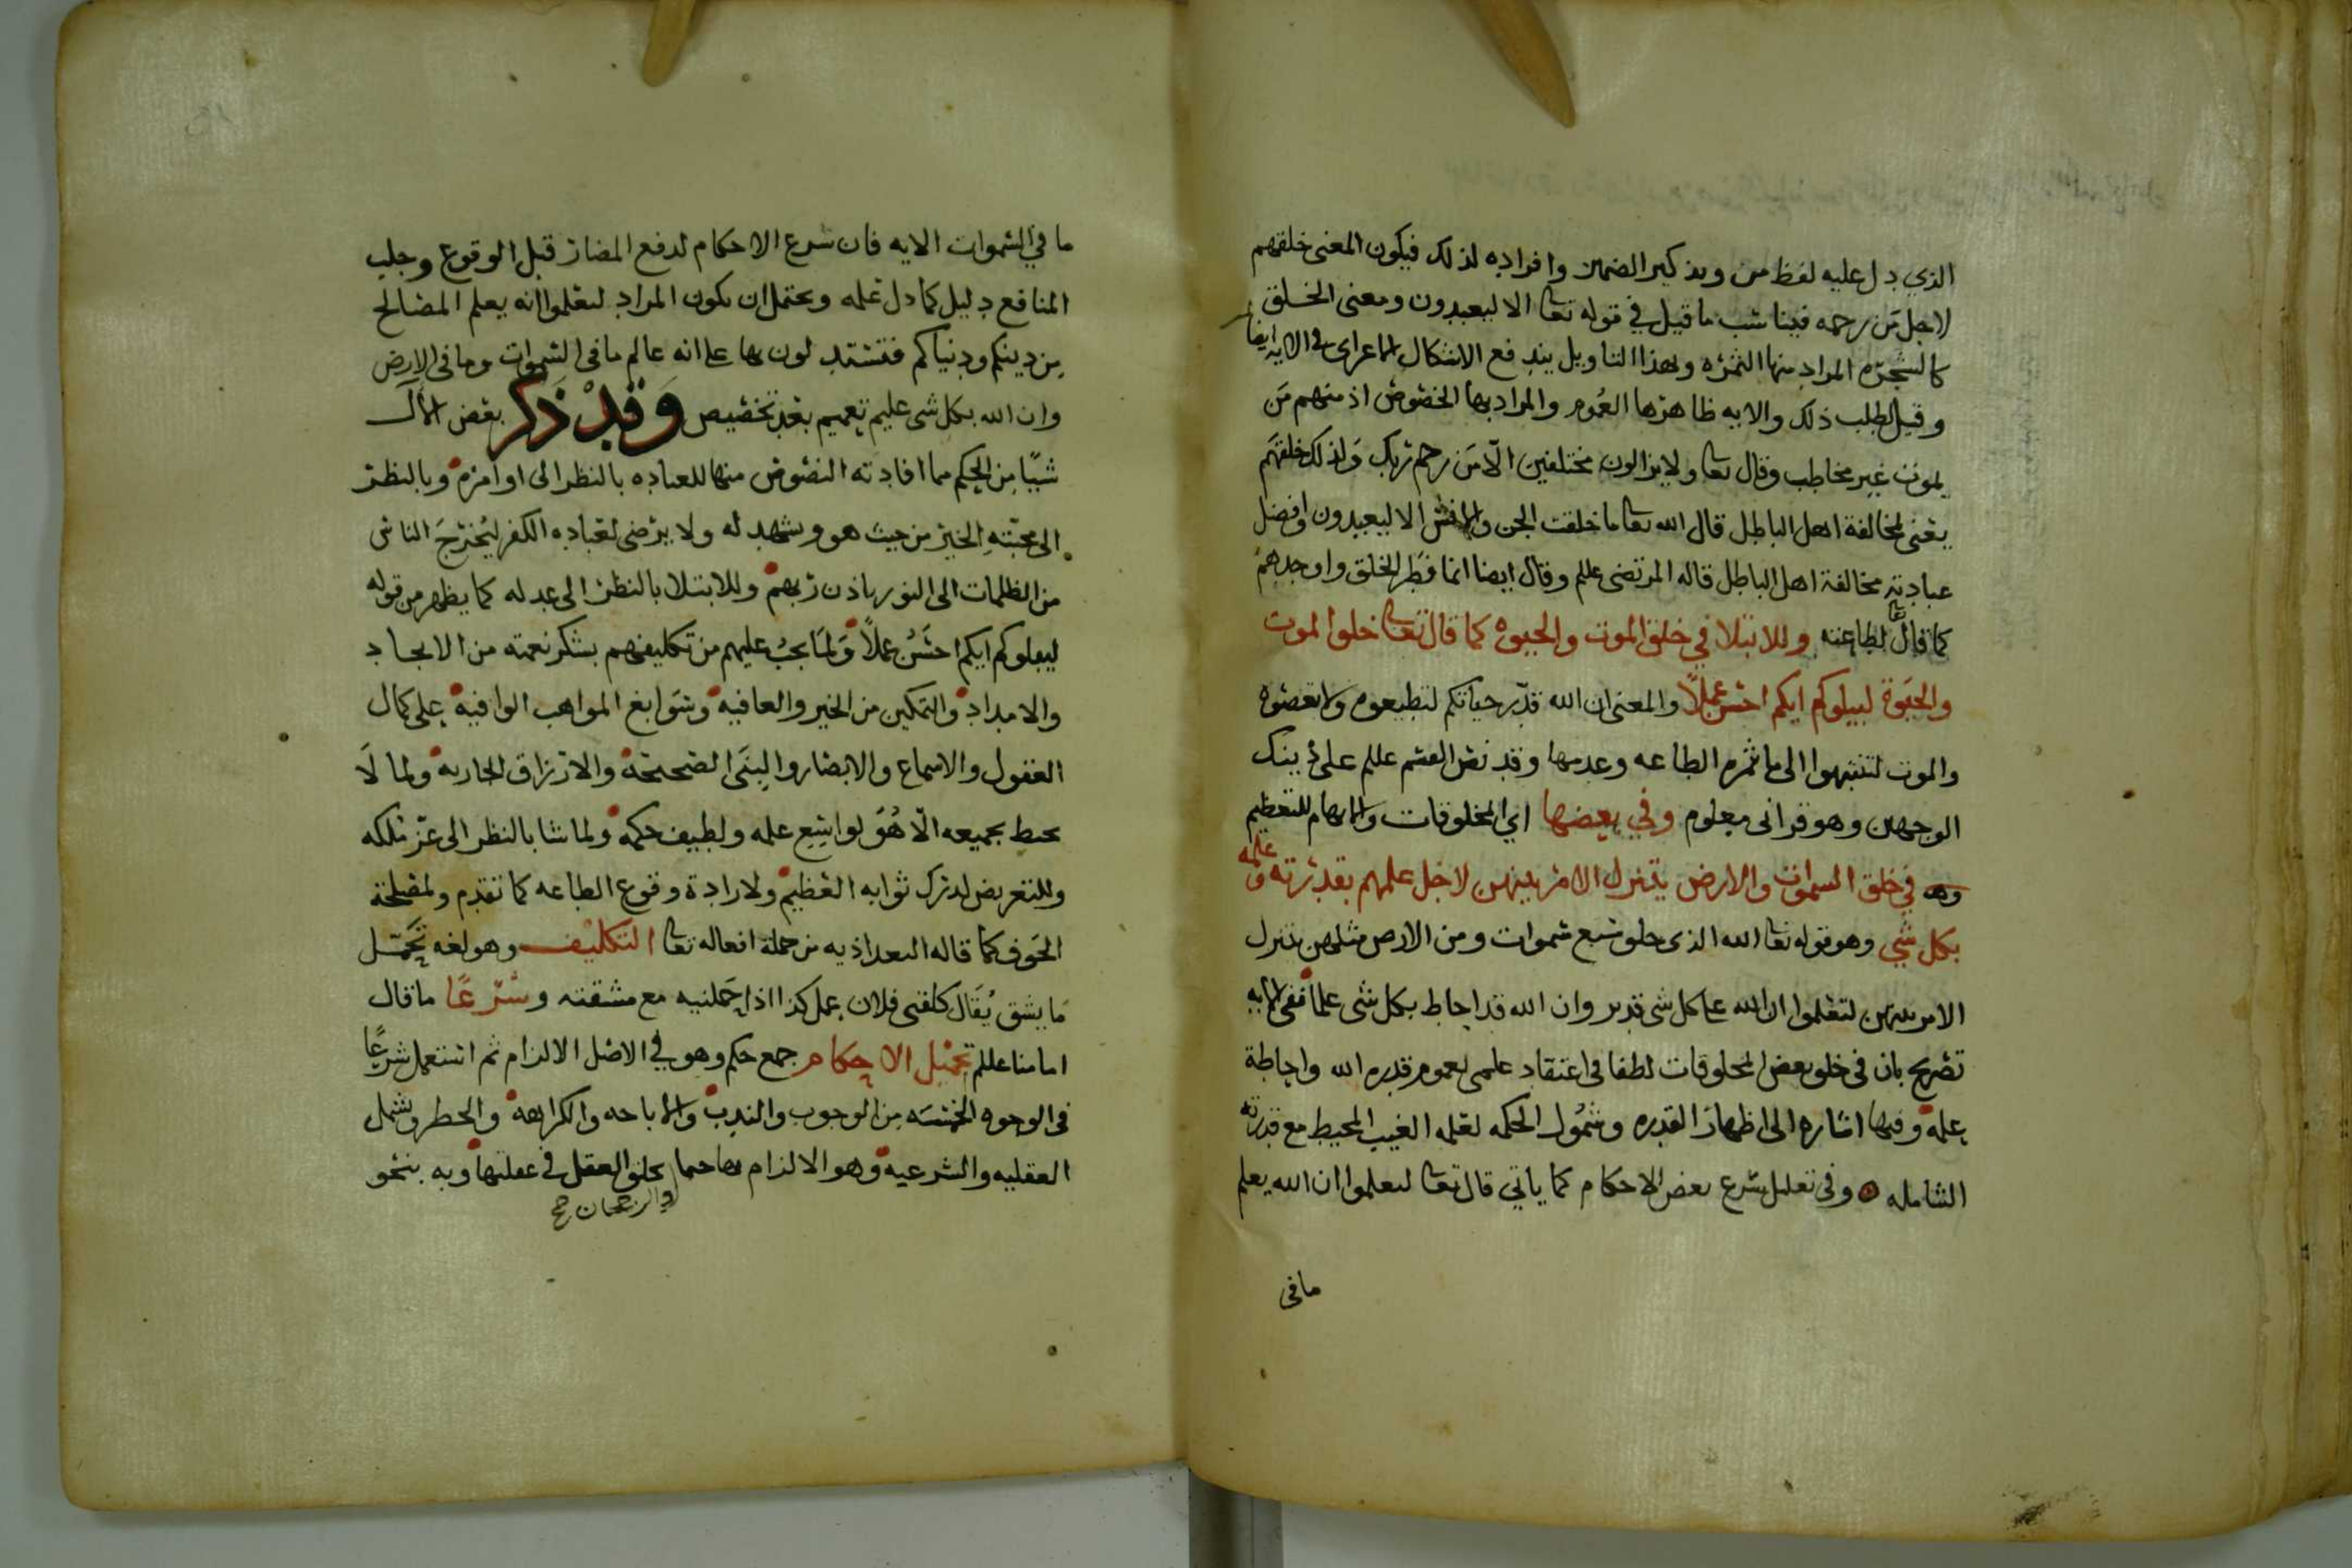 الذي دل عليه لفظ من وبذكير الضمير وافراده لذلك فيكون المعنى خلقهم
لاجل من رحمه فيناسب ما قيل في قوله تعا الا ليعبدون ومعنى الخلق
كالشجرة المراد منها الثمره وبهذا التاويل يندفع الاشكال في الايه ايضا
وقيل لطلب ذلك والايه ظاهرها العموم والمراد بها الخصوص اذ منهم من
يموت غير مخاطب وقال تعا ولا يزالون مختلفين الا من رحم ربك ولذلك خلقهم
يعنى لمخالفة اهل الباطل قال الله تعا ما خلقت الجن والانس الا ليعبدون وافضل
عبادته مخالفة اهل الباطل قاله المرتضى عللم وقال ايضا انما فطر الخلق واوجدهم
كما قال تعا لطاعته وللابتلا في خلق الموت والحيوه كما قال تعا خلق الموت
والحيوة ليبلوكم ايكم احسن عملا والمعنى ان الله قدر حياتكم لتطيعوه ولا تعصوه
والموت لتنتبهوا الى ما ثمره الطاعه وعدمها وقد نص القسم عللم على ذينك
الوجهين وهو قرانى معلوم وفي بعضها اي المخلوقات والابهام للتعظيم
وهو في خلق السموات والارض يتنزل الامر بينهن لاجل علمهم بقدرته وعلمه
بكل شي وهو قوله تعا الله الذى خلق سبع سموات ومن الارض مثلهن يتنزل
الامر بينهن لتعلموا ان الله على كل شى قدير وان الله قد احاط بكل شى علما ففى الايه
تصريح بان فى خلق بعض المخلوقات لطفا فى اعتقاد علمى لعموم قدره الله واحاطة
علمه وفيها اشاره الى اظهار القدره وشمول الحكمه لعلمه الغيب المحيط مع قدرته
الشامله وفى تعليل شرع بعض الاحكام كما ياتي قال تعا لتعلموا ان الله يعلم
مافى
ما في السموات الايه فان شرع الاحكام لدفع المضار قبل الوقوع وجلب
المنافع دليل كمادل عمله ويحتمل ان يكون المراد لتعلموا انه يعلم المصالح
من دينكم ودنياكم فتستدلون بها على انه عالم مافى السموات ومافى الارض
وان الله بكل شى عليم تعميم بعد تخصيص وقد ذكر بعض الآل
شيا من الحكم مما افادته النصوص منها للعباده بالنظر الى اوامره وبالنظر
الى محبته الخير من حيث هو ويشهد له ولا يرضى لعباده الكفر ليخرج الناس
من الظلمات الى النور باذن ربهم وللابتلا بالنظر الى عدله كما يظهر من قوله
ليبلوكم ايكم احسن عملا ولما يجب عليهم من تكليفهم بشكر نعمته من الايجاد
والامداد والتمكين من الخير والعافيه وسوابغ المواهب الوافيه على كمال
العقول والاسماع والابصار والبنى الصحيحة والارزاق الجاريه ولما لا
يحيط بجميعه الا هو لواسع علمه ولطيف حكمه ولما شا بالنظر الى عز ملكه
وللتعريض لدرك ثوابه العظيم ولارادة وقوع الطاعه كما تقدم ولمصلحة
الخوف كما قاله البغداذيه من جملة افعاله تعا التكليف وهو لغه تحمل
ما يشق يقال كلفنى فلان عمل كذا اذا حملنيه مع مشقته وشرعا ما قال
امامنا عللم تحميل الاحكام جمع حكم وهو في الاصل الالزام ثم استعمل شرعا
فى الوجوه الخمسه من الوجوب والندب والاباحه والكراهه والحظر وشمل
العقليه والشرعيه وهو الالزام بها حما بخلق العقل في عقليها وبه بنحو